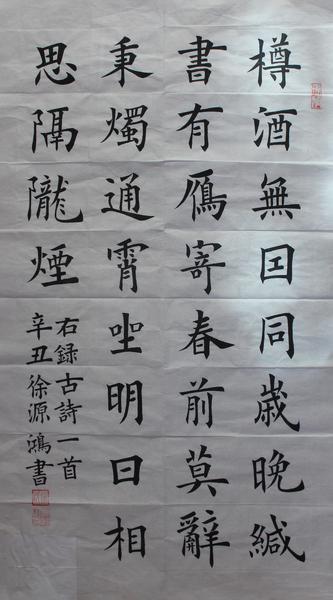 樽酒無囙同歲晚緘
書有鴈寄春前莫辭
秉燭通霄坐明日相
思隔隴煙
右録古詩一首
辛丑徐源鴻書